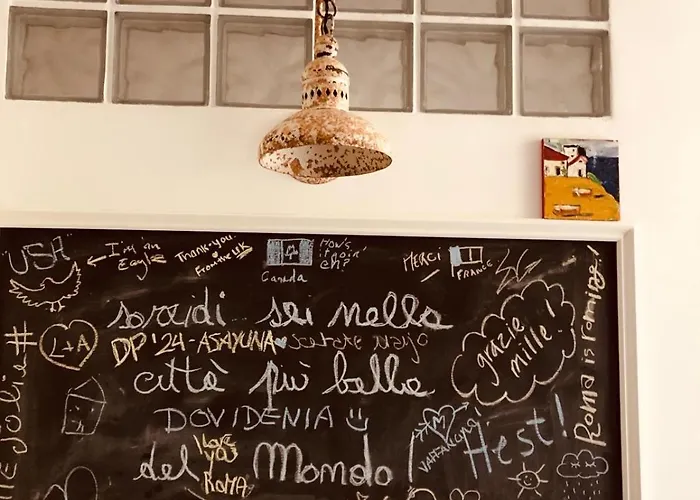 USA
I'm an
Eagle
Thank-you.
From the UK
Canada
HOW'S
IT GOIN'
EH?
MERCI
FRANCE
sorridi sei nella
L+A
DP'24-ASAYUNA
città più bella
grazie
mille!
DOVIDENIA
I love
you
ROMA
del Mondo!
Hest!
Roma is
#